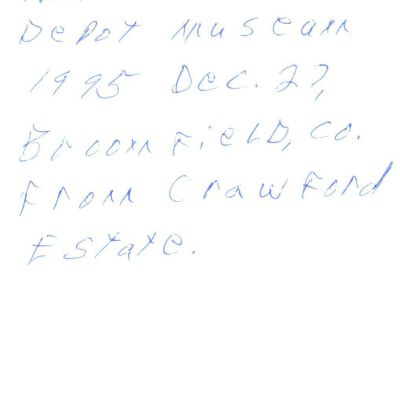 Depot Museum
1995 Dec. 27,
Broomfield, Co.
From Crawford
Estate.